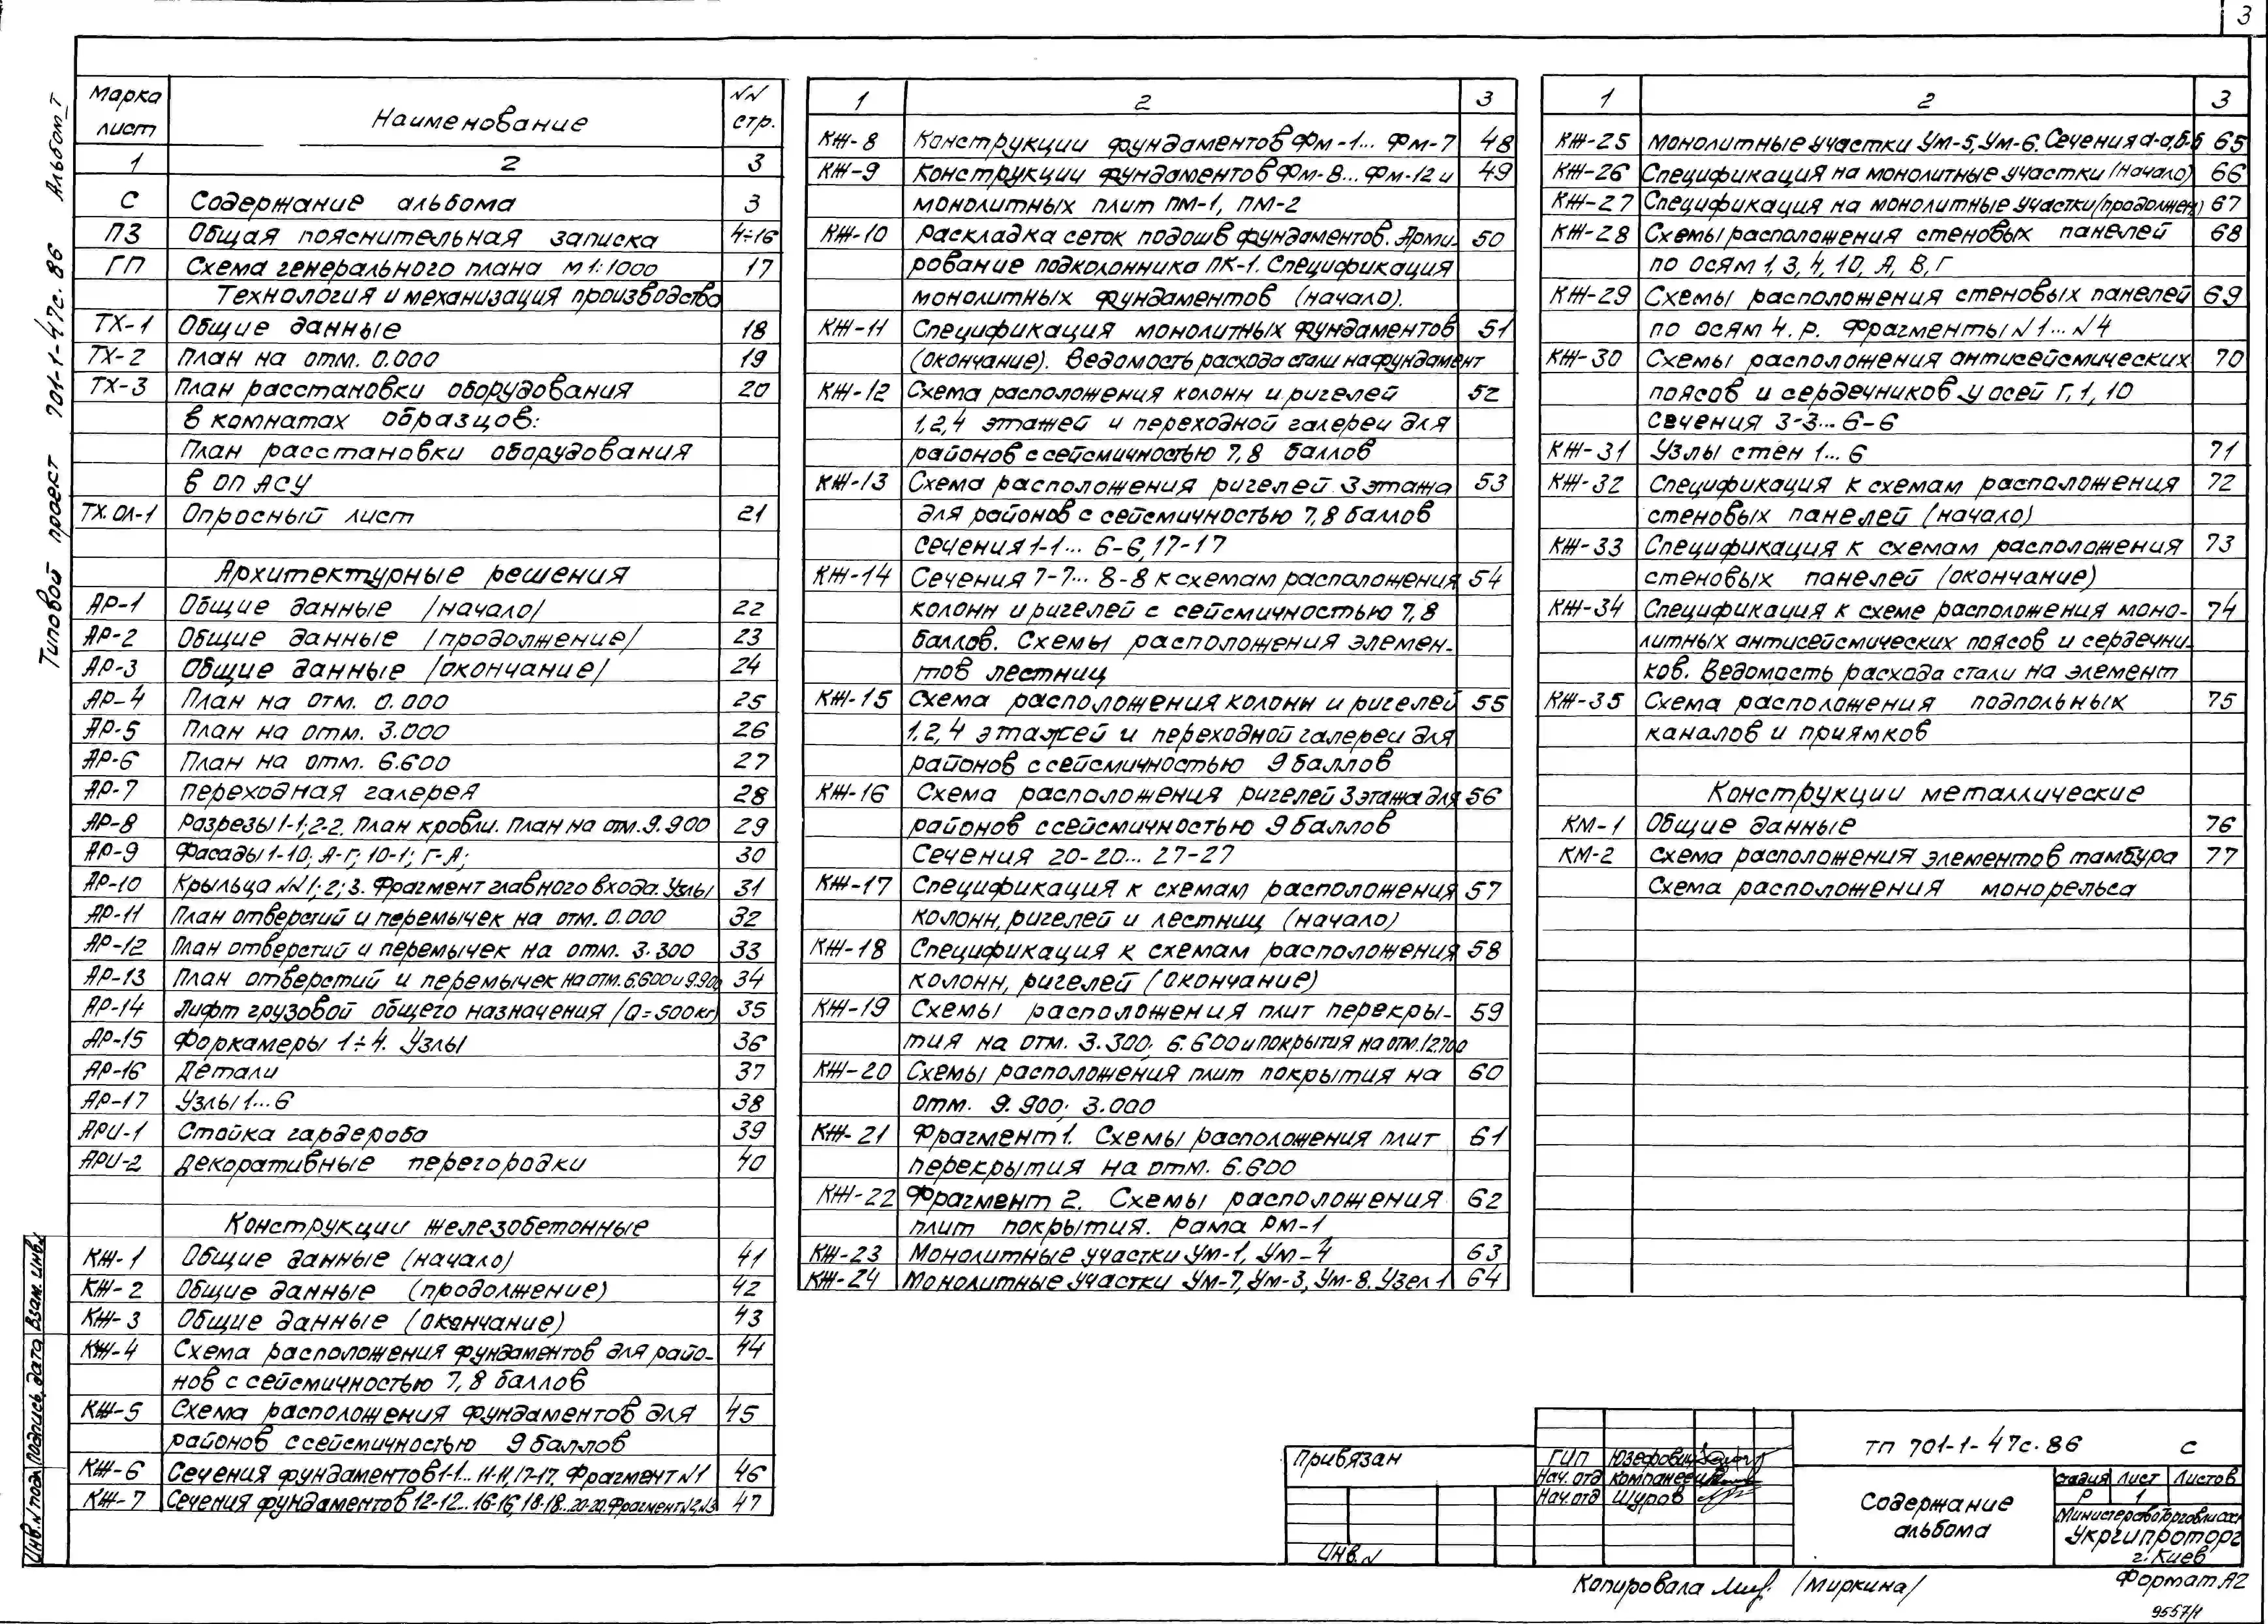 3
Типовой проект 701-1-47с.86 Альбом I
Марка лист Наименование NN стр.
1 2 3
С Содержание альбома 3
ПЗ Общая пояснительная записка 4÷16
ГП Схема генерального плана М 1:1000 17
Технология и механизация производства
ТХ-1 Общие данные 18
ТХ-2 План на отм. 0.000 19
ТХ-3 План расстановки оборудования 20
в комнатах образцов:
План расстановки оборудования
в ОП АСУ
ТХ.ОЛ-1 Опросный лист 21
Архитектурные решения
АР-1 Общие данные /начало/ 22
АР-2 Общие данные /продолжение/ 23
АР-3 Общие данные /окончание/ 24
АР-4 План на отм. 0.000 25
АР-5 План на отм. 3.000 26
АР-6 План на отм. 6.600 27
АР-7 Переходная галерея 28
АР-8 Разрезы 1-1; 2-2. План кровли. План на отм. 9.900 29
АР-9 Фасады 1-10; А-Г; 10-1; Г-А; 30
АР-10 Крыльца NN 1; 2; 3. Фрагмент главного входа. Узлы 31
АР-11 План отверстий и перемычек на отм. 0.000 32
АР-12 План отверстий и перемычек на отм. 3.300 33
АР-13 План отверстий и перемычек на отм. 6.600 и 9.900 34
АР-14 Лифт грузовой общего назначения /Q=500кг/ 35
АР-15 Форкамеры 1÷4. Узлы 36
АР-16 Детали 37
АР-17 Узлы 1...6 38
АРИ-1 Стойка гардероба 39
АРИ-2 Декоративные перегородки 40
Конструкции железобетонные
КЖ-1 Общие данные (начало) 41
КЖ-2 Общие данные (продолжение) 42
КЖ-3 Общие данные (окончание) 43
КЖ-4 Схема расположения фундаментов для райо- 44
нов с сейсмичностью 7, 8 баллов
КЖ-5 Схема расположения фундаментов для 45
районов с сейсмичностью 9 баллов
КЖ-6 Сечения фундаментов 1-1... 11-11, 17-17. Фрагмент N1 46
КЖ-7 Сечения фундаментов 12-12... 16-16, 18-18... 20-20, Фрагмент N2, N3 47
1 2 3
КЖ-8 Конструкции фундаментов Фм-1... Фм-7 48
КЖ-9 Конструкции фундаментов Фм-8... Фм-12 и 49
монолитных плит ПМ-1, ПМ-2
КЖ-10 Раскладка сеток подошв фундаментов. Арми- 50
рование подколонника ПК-1. Спецификация
монолитных фундаментов (начало).
КЖ-11 Спецификация монолитных фундаментов 51
(окончание). Ведомость расхода стали на фундамент
КЖ-12 Схема расположения колонн и ригелей 52
1, 2, 4 этажей и переходной галереи для
районов с сейсмичностью 7, 8 баллов
КЖ-13 Схема расположения ригелей 3 этажа 53
для районов с сейсмичностью 7, 8 баллов
Сечения 1-1... 6-6, 17-17
КЖ-14 Сечения 7-7... 8-8 к схемам расположения 54
колонн и ригелей с сейсмичностью 7, 8
баллов. Схемы расположения элемен-
тов лестниц
КЖ-15 Схема расположения колонн и ригелей 55
1, 2, 4 этажей и переходной галереи для
районов с сейсмичностью 9 баллов
КЖ-16 Схема расположения ригелей 3 этажа для 56
районов с сейсмичностью 9 баллов
Сечения 20-20... 27-27
КЖ-17 Спецификация к схемам расположения 57
колонн, ригелей и лестниц (начало)
КЖ-18 Спецификация к схемам расположения 58
колонн, ригелей (окончание)
КЖ-19 Схемы расположения плит перекры- 59
тия на отм. 3.300; 6.600 и покрытия на отм. 12.700
КЖ-20 Схемы расположения плит покрытия на 60
отм. 9.900; 3.000
КЖ-21 Фрагмент 1. Схемы расположения плит 61
перекрытия на отм. 6.600
КЖ-22 Фрагмент 2. Схемы расположения 62
плит покрытия. Рама РМ-1
КЖ-23 Монолитные участки Ум-1, Ум-4 63
КЖ-24 Монолитные участки Ум-7, Ум-3, Ум-8. Узел 1 64
1 2 3
КЖ-25 Монолитные участки Ум-5, Ум-6. Сечения а-а, б-б 65
КЖ-26 Спецификация на монолитные участки (начало) 66
КЖ-27 Спецификация на монолитные участки (продолжен) 67
КЖ-28 Схемы расположения стеновых панелей 68
по осям 1, 3, 4, 10, А, В, Г
КЖ-29 Схемы расположения стеновых панелей 69
по осям 4. р. Фрагменты N1... N4
КЖ-30 Схемы расположения антисейсмических 70
поясов и сердечников у осей Г, 1, 10
Сечения 3-3... 6-6
КЖ-31 Узлы стен 1... 6 71
КЖ-32 Спецификация к схемам расположения 72
стеновых панелей (начало)
КЖ-33 Спецификация к схемам расположения 73
стеновых панелей (окончание)
КЖ-34 Спецификация к схеме расположения моно- 74
литных антисейсмических поясов и сердечни-
ков. Ведомость расхода стали на элемент
КЖ-35 Схема расположения подпольных 75
каналов и приямков
Конструкции металлические
КМ-1 Общие данные 76
КМ-2 Схема расположения элементов тамбура 77
Схема расположения монорельса
Инв. N подл. Подпись, дата Взам. инв. N
Привязан
Инв. N
ГИП Юзефович
Нач. отд Компанеец
Нач. отд Щуров
ТП 701-1-47с.86 С
Содержание
альбома
Стадия Лист Листов
Р 1
Министерство торговли СССР
Укргипроторг
г. Киев
Копировала /Миркина/
Формат А2
9557/1